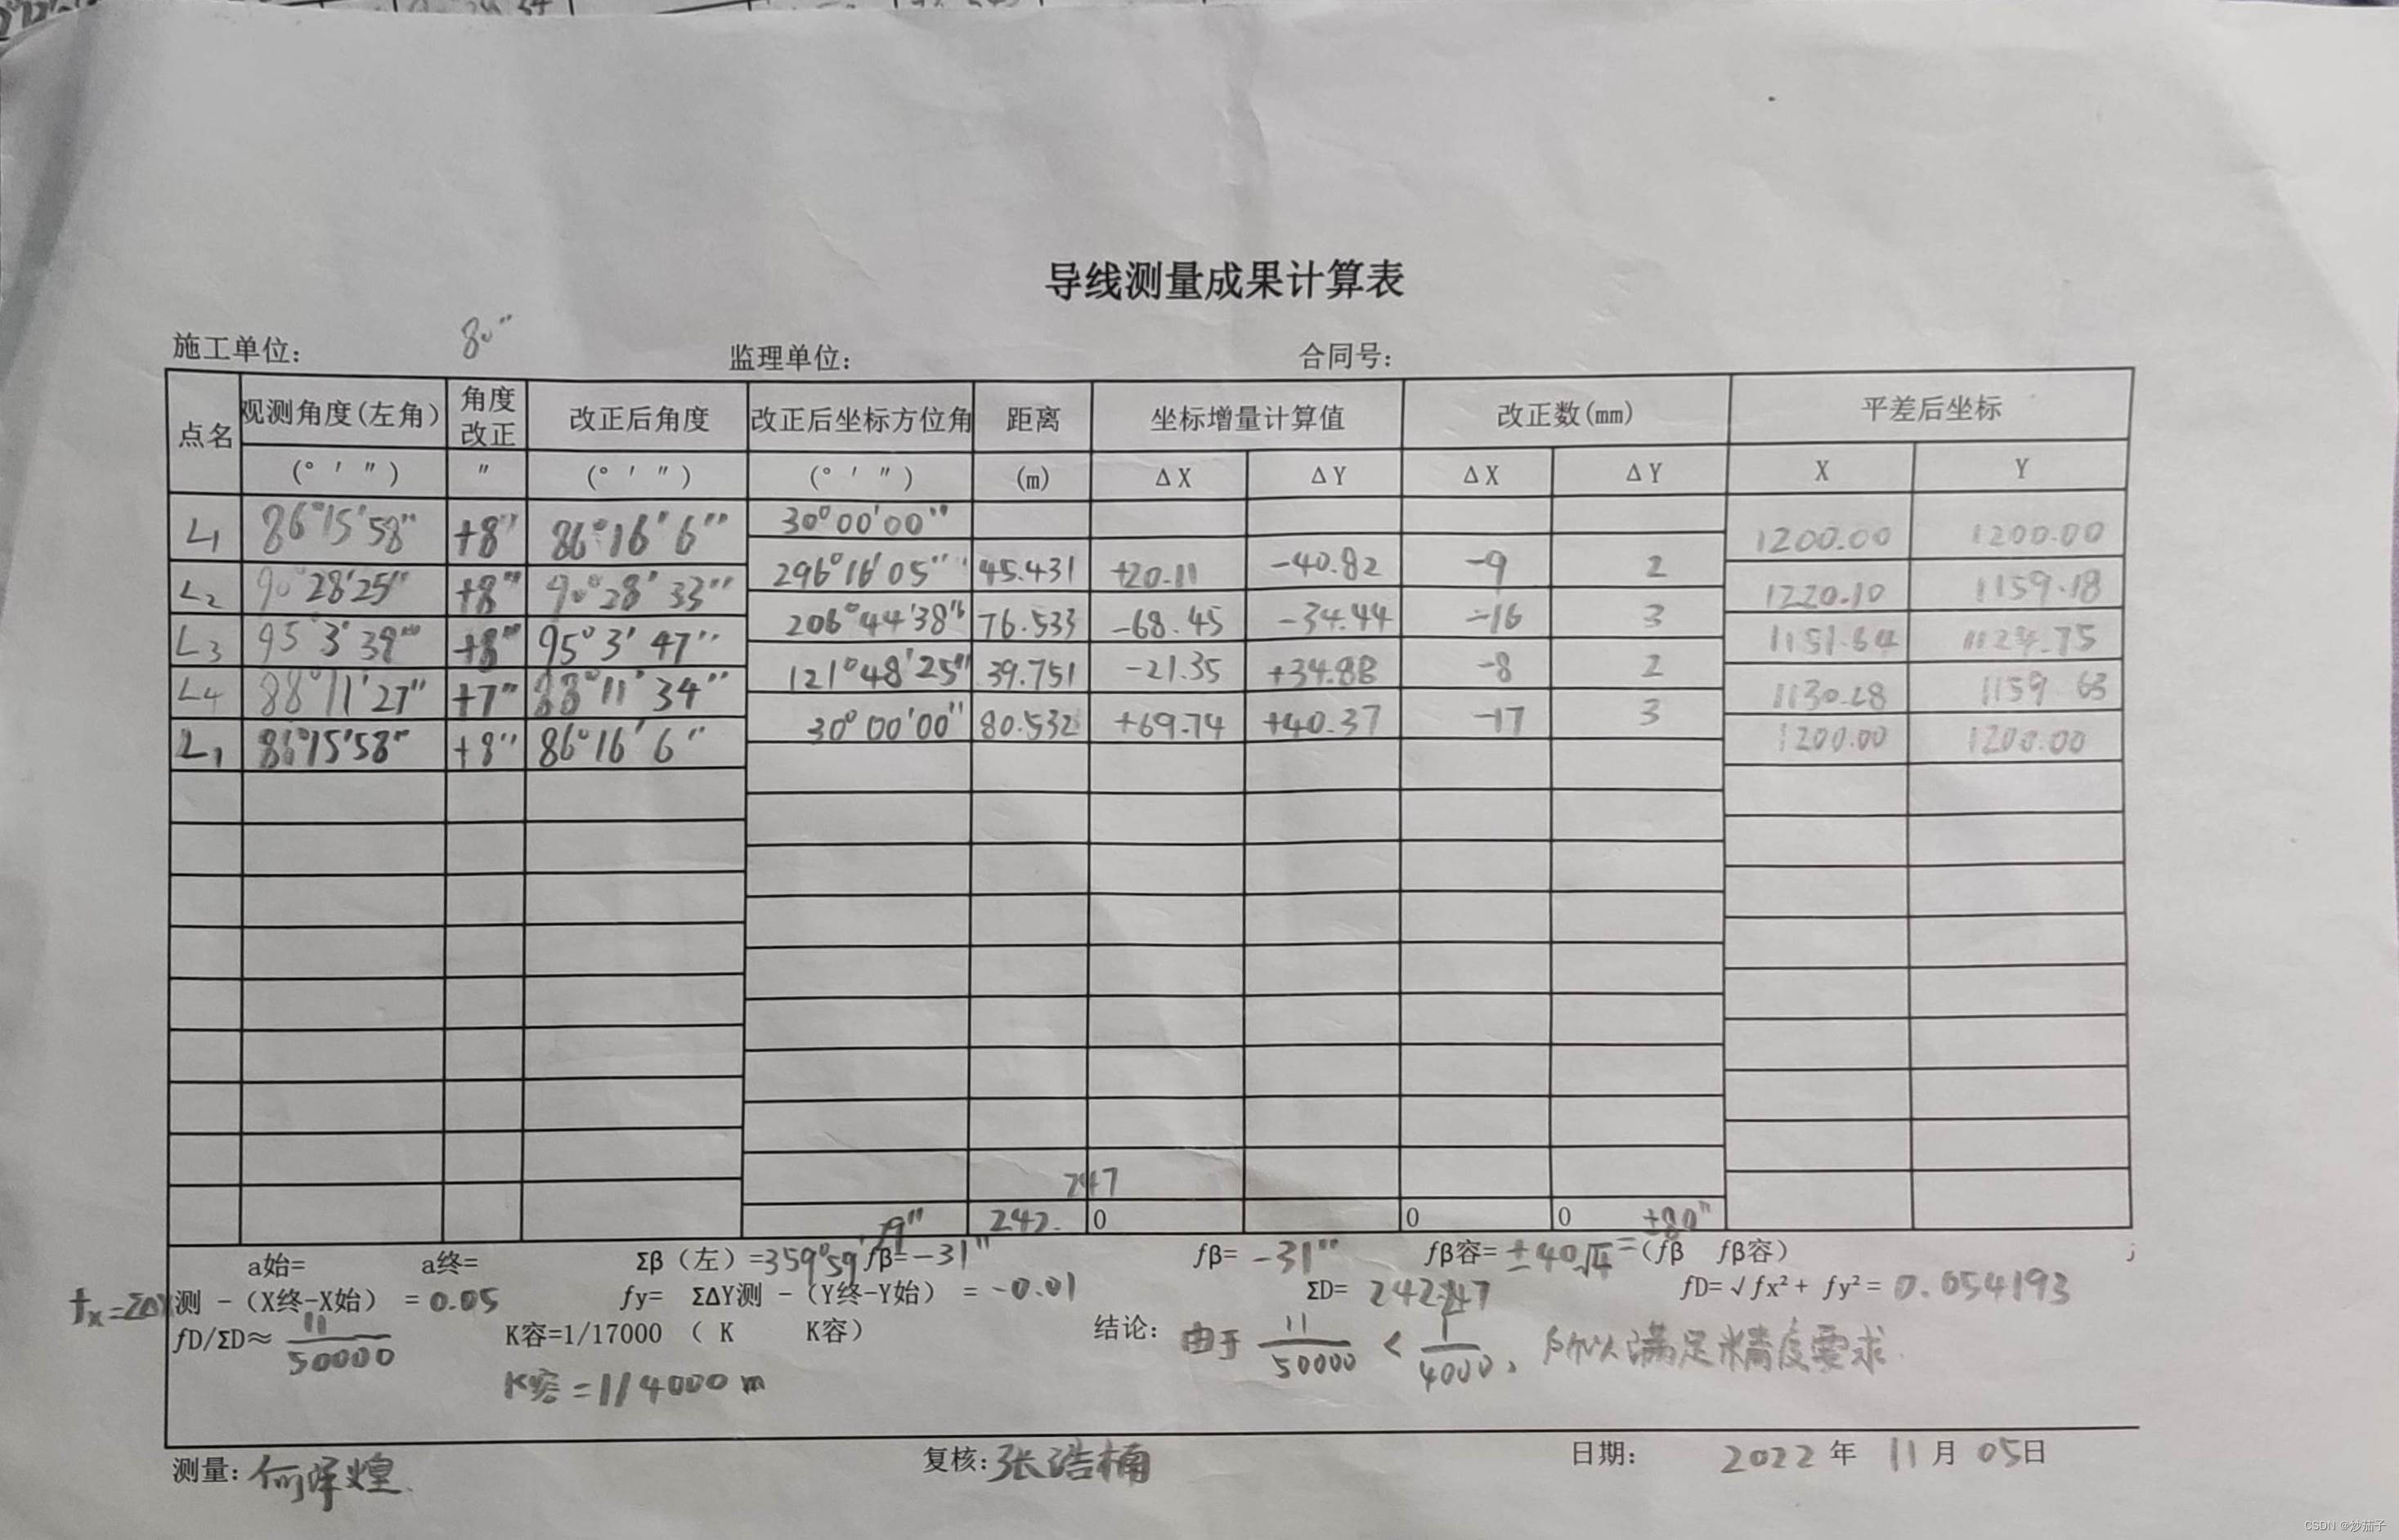 导线测量成果计算表
80"
施工单位: 监理单位: 合同号:
点名 观测角度(左角) 角度改正 改正后角度 改正后坐标方位角 距离 坐标增量计算值 改正数(mm) 平差后坐标
(° ′ ″) ″ (° ′ ″) (° ′ ″) (m) ΔX ΔY ΔX ΔY X Y
L1 86°15′58″ +8″ 86°16′6″ 30°00′00″ 1200.00 1200.00
296°16′05″ 45.431 +20.11 -40.82 -9 2
L2 90°28′25″ +8″ 90°28′33″ 1220.10 1159.18
206°44′38″ 76.533 -68.45 -34.44 -16 3
L3 95°3′39″ +8″ 95°3′47″ 1151.64 1124.75
121°48′25″ 39.751 -21.35 +34.88 -8 2
L4 88°11′27″ +7″ 88°11′34″ 1130.28 1159.63
30°00′00″ 80.532 +69.74 +40.37 -17 3
L1 86°15′58″ +8″ 86°16′6″ 1200.00 1200.00
247
242. 0 0 0
a始= a终= Σβ(左)=359°59′ fβ=-31″ fβ= -31″ fβ容=±40√4=(fβ fβ容) +80″
fx=ΣΔX测 -(X终-X始) =0.05 fy= ΣΔY测 -(Y终-Y始) =-0.01 ΣD= 242.247 fD=√fx²+ fy²= 0.054193
fD/ΣD≈ 11/50000 K容=1/17000 ( K K容) 结论: 由于 11/50000 < 1/4000, 所以满足精度要求.
K容=1/4000 m
测量: 何泽煌. 复核:张浩楠 日期: 2022 年 11 月 05日
CSDN @炒茄子